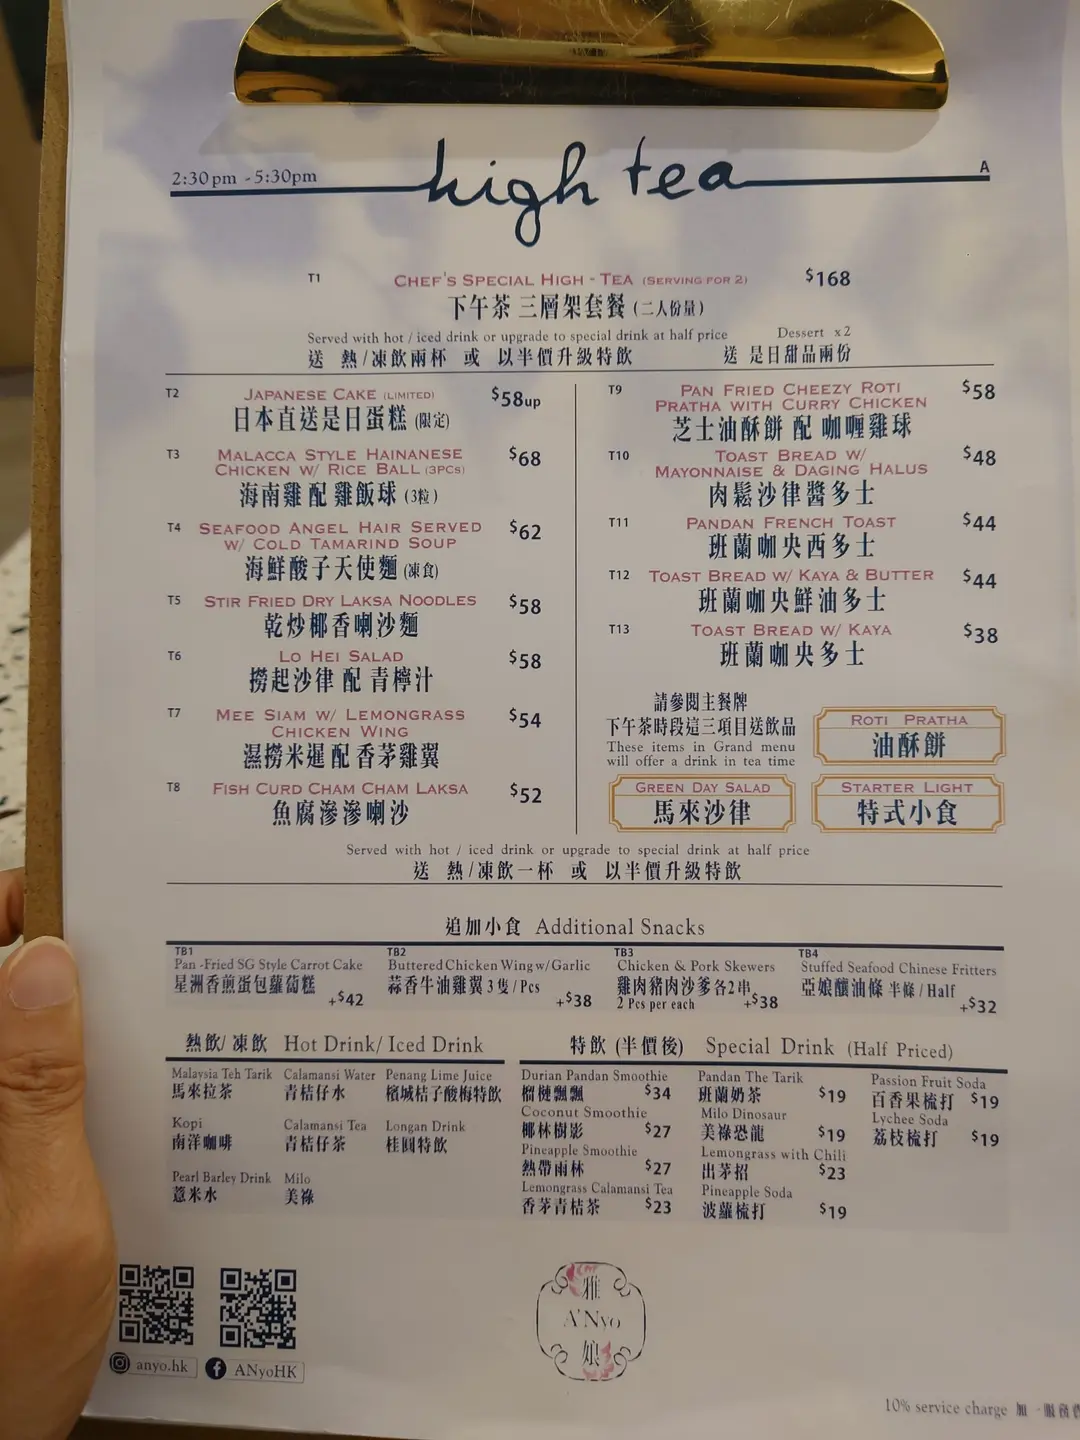 2:30pm -5:30pm
high tea
A
T1 CHEF'S SPECIAL HIGH - TEA (SERVING FOR 2) $168
下午茶 三層架套餐 (二人份量)
Served with hot / iced drink or upgrade to special drink at half price Dessert x2
送 熱/凍飲兩杯 或 以半價升級特飲 送 是日甜品兩份
T2 JAPANESE CAKE (LIMITED) $58up
日本直送是日蛋糕 (限定)
T3 MALACCA STYLE HAINANESE $68
CHICKEN W/ RICE BALL (3PCS)
海南雞 配 雞飯球 (3粒)
T4 SEAFOOD ANGEL HAIR SERVED $62
W/ COLD TAMARIND SOUP
海鮮酸子天使麵 (凍食)
T5 STIR FRIED DRY LAKSA NOODLES $58
乾炒椰香喇沙麵
T6 LO HEI SALAD $58
撈起沙律 配 青檸汁
T7 MEE SIAM W/ LEMONGRASS $54
CHICKEN WING
濕撈米暹 配 香茅雞翼
T8 FISH CURD CHAM CHAM LAKSA $52
魚腐滲滲喇沙
T9 PAN FRIED CHEEZY ROTI $58
PRATHA WITH CURRY CHICKEN
芝士油酥餅 配 咖喱雞球
T10 TOAST BREAD W/ $48
MAYONNAISE & DAGING HALUS
肉鬆沙律醬多士
T11 PANDAN FRENCH TOAST $44
班蘭咖央西多士
T12 TOAST BREAD W/ KAYA & BUTTER $44
班蘭咖央鮮油多士
T13 TOAST BREAD W/ KAYA $38
班蘭咖央多士
請參閱主餐牌
下午茶時段這三項目送飲品
These items in Grand menu
will offer a drink in tea time
ROTI PRATHA
油酥餅
GREEN DAY SALAD
馬來沙律
STARTER LIGHT
特式小食
Served with hot / iced drink or upgrade to special drink at half price
送 熱/凍飲一杯 或 以半價升級特飲
追加小食 Additional Snacks
TB1
Pan -Fried SG Style Carrot Cake
星洲香煎蛋包蘿蔔糕
+$42
TB2
Buttered Chicken Wing w/ Garlic
蒜香牛油雞翼 3 隻 / Pcs
+$38
TB3
Chicken & Pork Skewers
雞肉豬肉沙爹各2串
2 Pcs per each +$38
TB4
Stuffed Seafood Chinese Fritters
亞娘釀油條 半條 / Half
+$32
熱飲/ 凍飲 Hot Drink/ Iced Drink
Malaysia Teh Tarik
馬來拉茶
Calamansi Water
青桔仔水
Penang Lime Juice
檳城桔子酸梅特飲
Kopi
南洋咖啡
Calamansi Tea
青桔仔茶
Longan Drink
桂圓特飲
Pearl Barley Drink
薏米水
Milo
美祿
特飲 (半價後) Special Drink (Half Priced)
Durian Pandan Smoothie
榴槤飄飄 $34
Coconut Smoothie
椰林樹影 $27
Pineapple Smoothie
熱帶雨林 $27
Lemongrass Calamansi Tea
香茅青桔茶 $23
Pandan The Tarik
班蘭奶茶 $19
Milo Dinosaur
美祿恐龍 $19
Lemongrass with Chili
出茅招 $23
Pineapple Soda
波蘿梳打 $19
Passion Fruit Soda
百香果梳打 $19
Lychee Soda
荔枝梳打 $19
anyo.hk
ANyoHK
雅
A'Nyo
娘
10% service charge 加一服務費